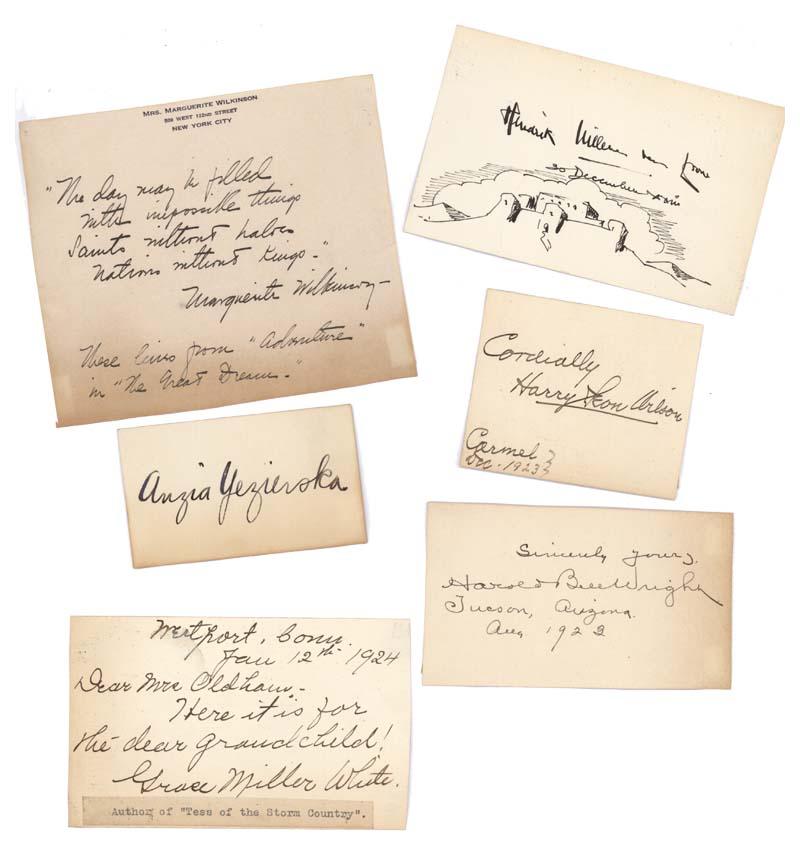 MRS. MARGUERITE WILKINSON
WEST 122ND STREET
NEW YORK CITY
"The day may be filled
with impossible things
Saints without haloes
Nations without Kings."
Marguerite Wilkinson
These lines from "Adventure"
in "The Great Dream."
Hendrik Willem van Loon
30 December
Cordially
Harry Leon Wilson
Carmel
Dec. 1923
Anzia Yezierska
Sincerely yours,
Harold Bell Wright
Tucson, Arizona.
Aug 1922
Westport, Conn.
Jan 12th 1924
Dear Mrs Oldham-
Here it is for
the dear grandchild!
Grace Miller White.
Author of "Tess of the Storm Country".